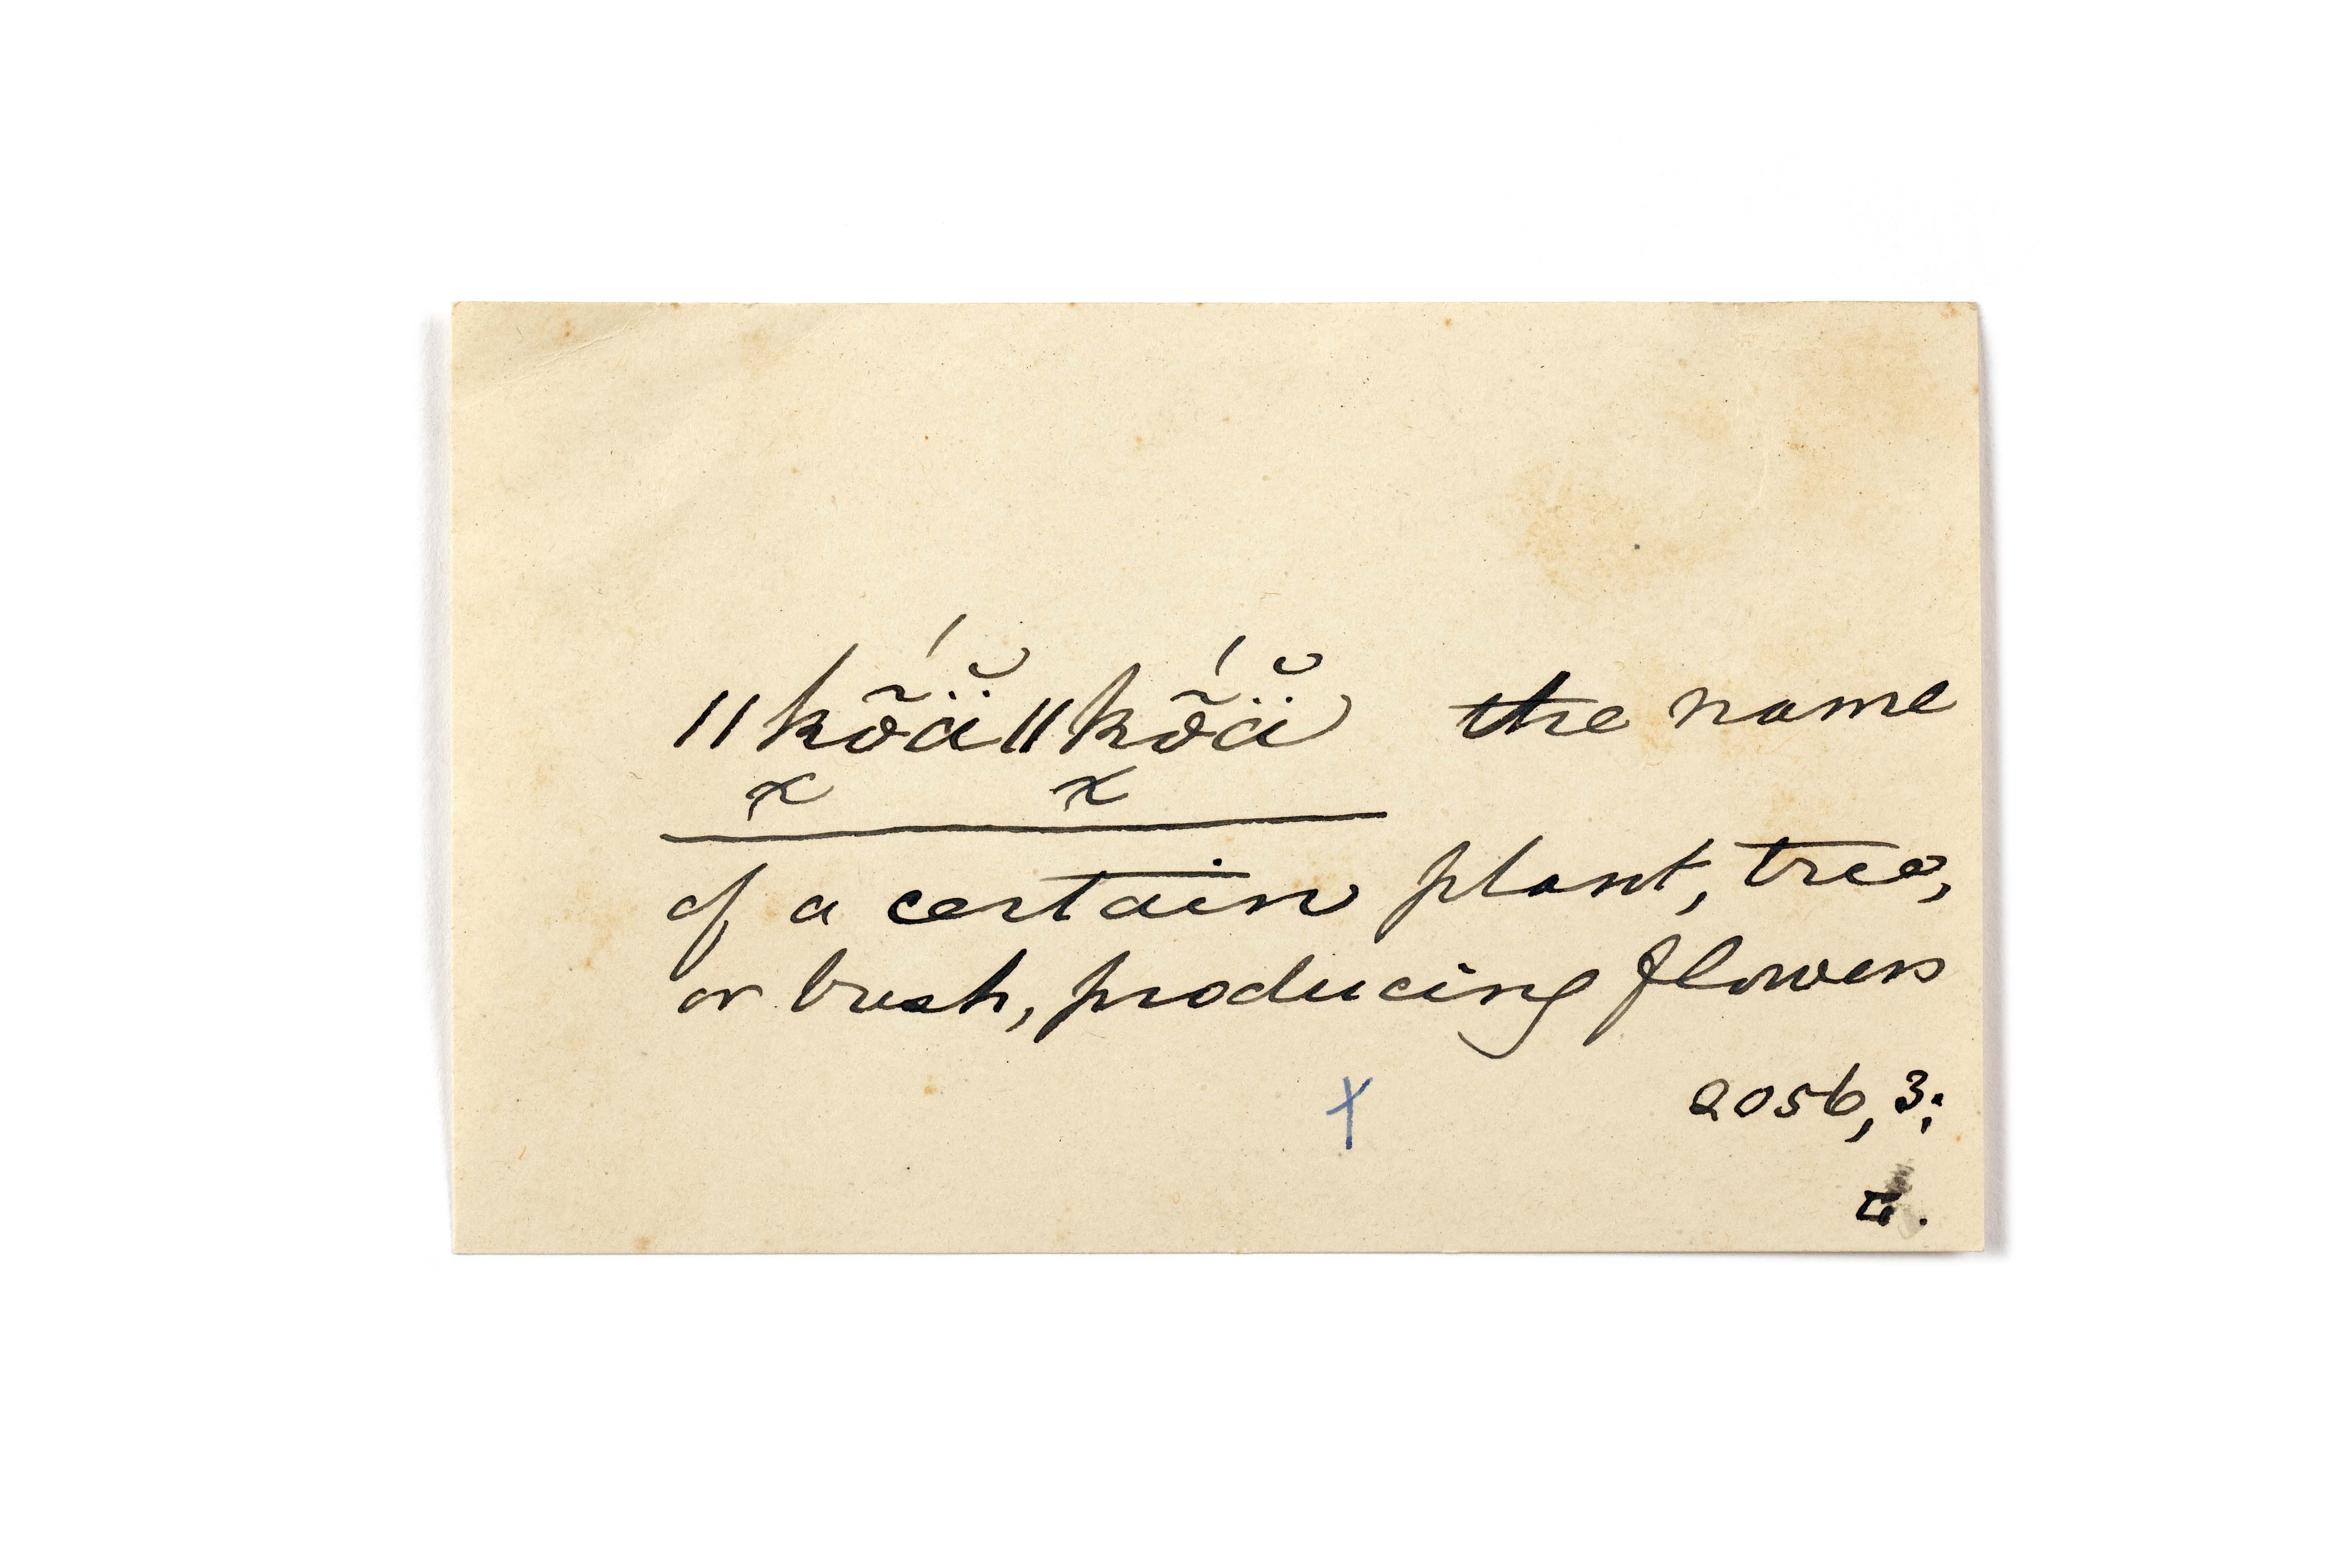 ǁkȭá̤̈̆ǁkȭä̆ the name
x x
of a certain plant, tree,
or bush, producing flowers
x 2056, 3;